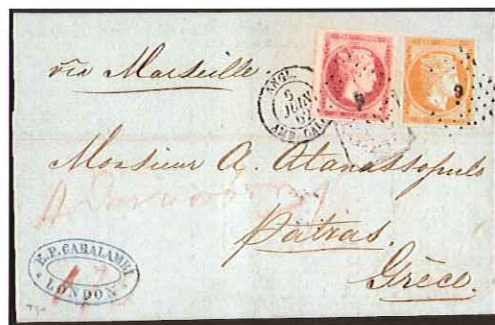 via Marseille
ANGL.
5
JUIN
AMB. CAL
9
9
Monsieur A. Atanassopulo
Patras.
Grèce.
E. P. CARALAMBI
LONDON